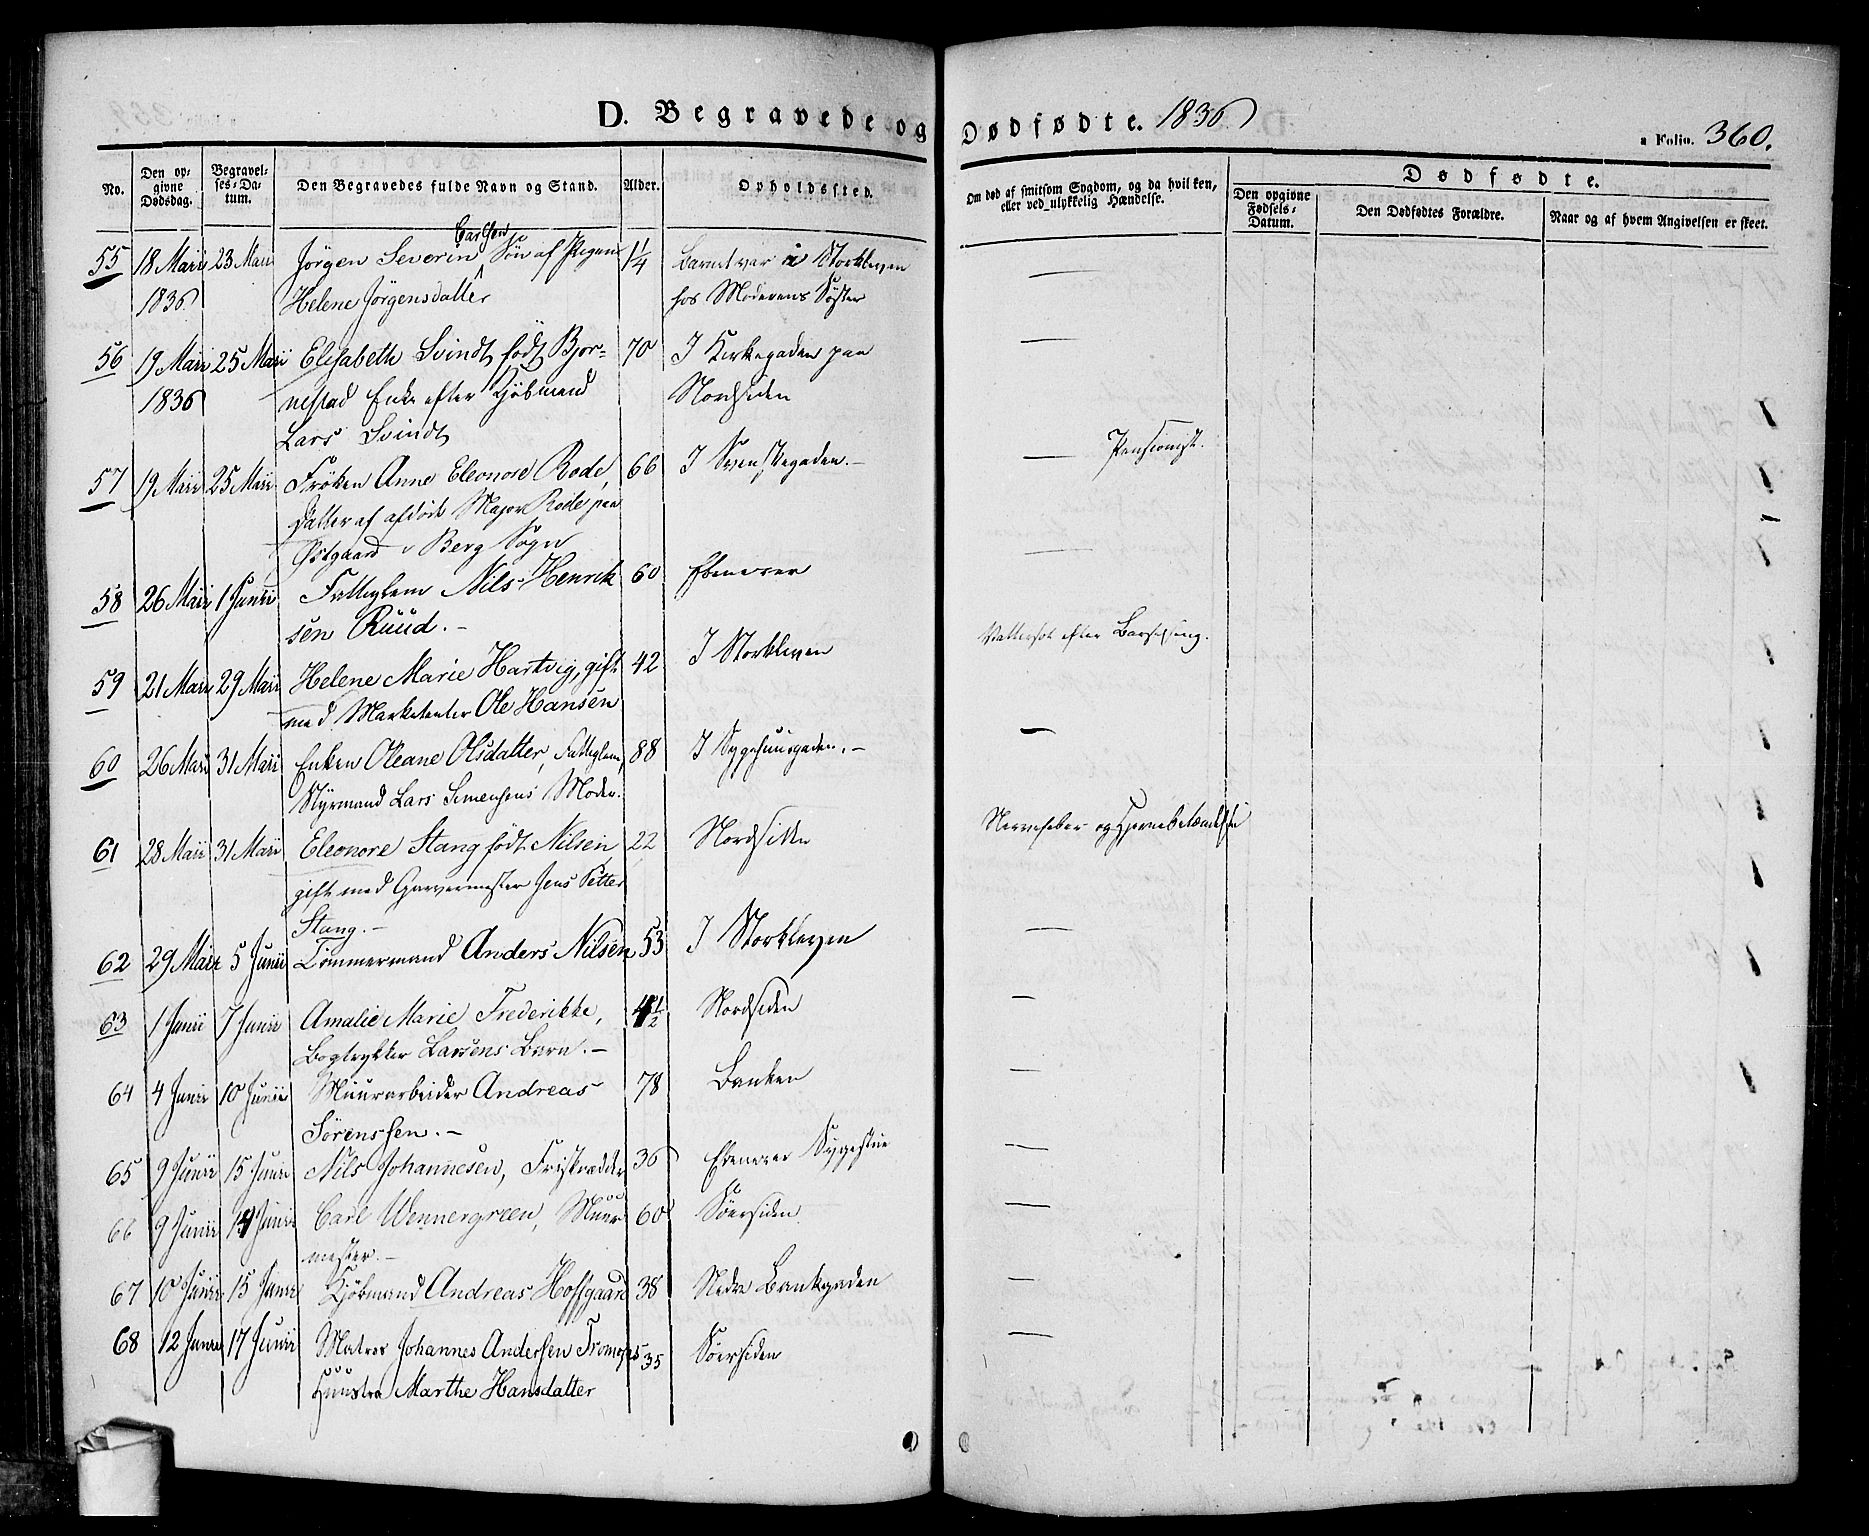 D. Begravede og Dødfødte. 1836
Folio. 360.
No.
Den opgivne Dødsdag.
Begravelses-Datum.
Den Begravedes fulde Navn og Stand.
Alder.
Opholdssted.
Om død af smitsom Sygdom, og da hvilken, eller ved ulykkelig Hændelse.
Dødfødte.
Den opgivne Fødsels-Datum.
Den Dødfødtes Forældre.
Naar og af hvem Angivelsen er skeet.
Carlsen
55 18 Maii 23 Maii Jörgen Severin, Søn af Pigen 1 1/4 Barnet var i Storkleven —
1836 Helene Jörgensdatter hos Moderens Søster
56 19 Maii 25 Maii Elisabeth Svindt, født Bjor= 70 I Kirkegaden paa —
1836 nestad Enke efter Kjöbmand Nordsiden
Lars Svindt
57 19 Maii 25 Maii Frøken Anne Eleonore Rode, 66 I Svenskegaden.— — Pensionist.
Datter af afdöde Major Rode paa
Østgaard i Berg Sogn
58 26 Maii 1 Junii Fatteglem Nils Henrik 60 Ebenezer —
sen Rüüd.—
59 21 Maii 29 Maii Helene Marie Hartvig, gift 42 I Storkleven Vattersot efter Barselseng.
med Marketenter Ole Hansen
60 26 Maii 31 Maii Enken Oleane Olsdatter, Fatteglem, 88 I Sygehuusgaden.— —
Styrmand Lars Simensens Moder.
61 28 Maii 31 Maii Eleonore Stang født Nilsen, 22 Nordsiden Nervefeber og Hjernebetændelse
gift med Garvermester Jens Petter
Stang.—
62 29 Maii 5 Junii Tømmermand Anders Nilsen 53 I Storkleven —
63 1 Junii 7 Junii Amalie Marie Frederikke, 4 1/2 Nordsiden —
Bogtrykker Larsens Barn.—
64 4 Junii 10 Junii Muurarbeider Andreas 78 Banken —
Sörenssen.—
65 9 Junii 15 Junii Nils Johannesen, 36 Ebenezer Sygestue —
66 9 Junii 14 Junii Carl Wennergreen, Muur 60 Søersiden —
mester.—
67 10 Junii 15 Junii Kjöbmand Andreas Hoffgaard 38 Nedre Bankgaden —
68 12 Junii 17 Junii Matros Johannes Andersen 35 Søersiden —
Huustro Marthe Hansdatter